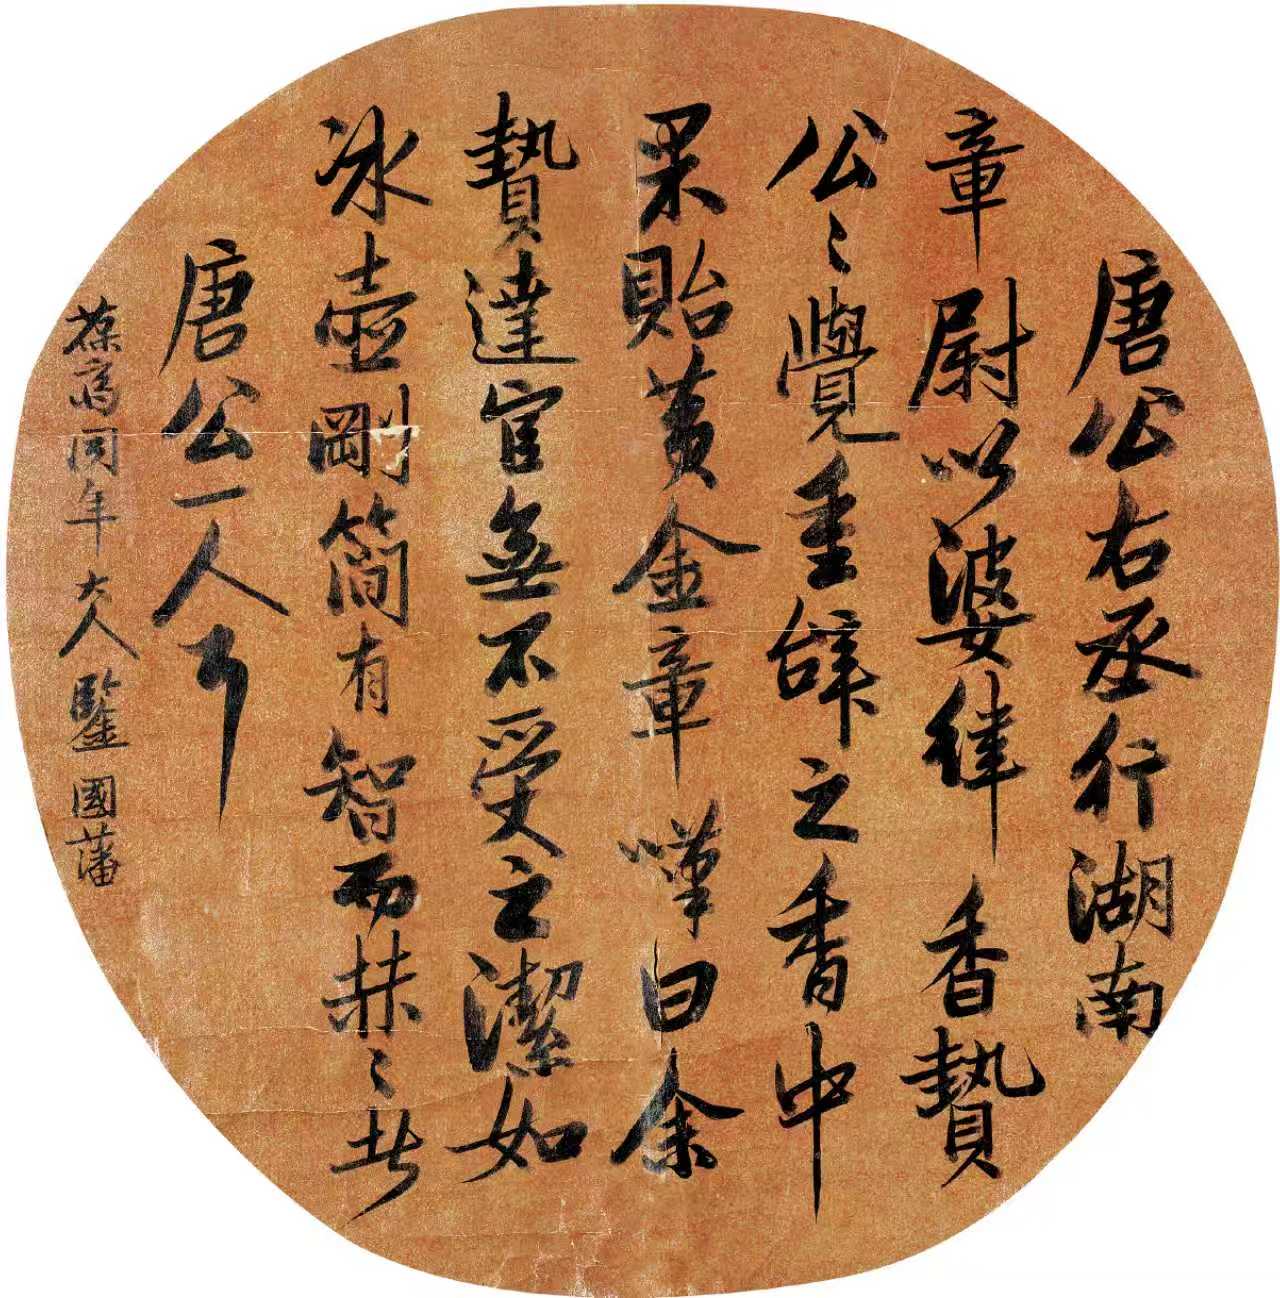 唐公右丞行湖南
章尉以婆律香贄
公〻覺重辭之香中
果貽黃金章嘆曰余
贄達官無不受之潔如
冰壺剛簡有智而赫〻此
唐公一人耳
葆 同年大人鑒 國藩